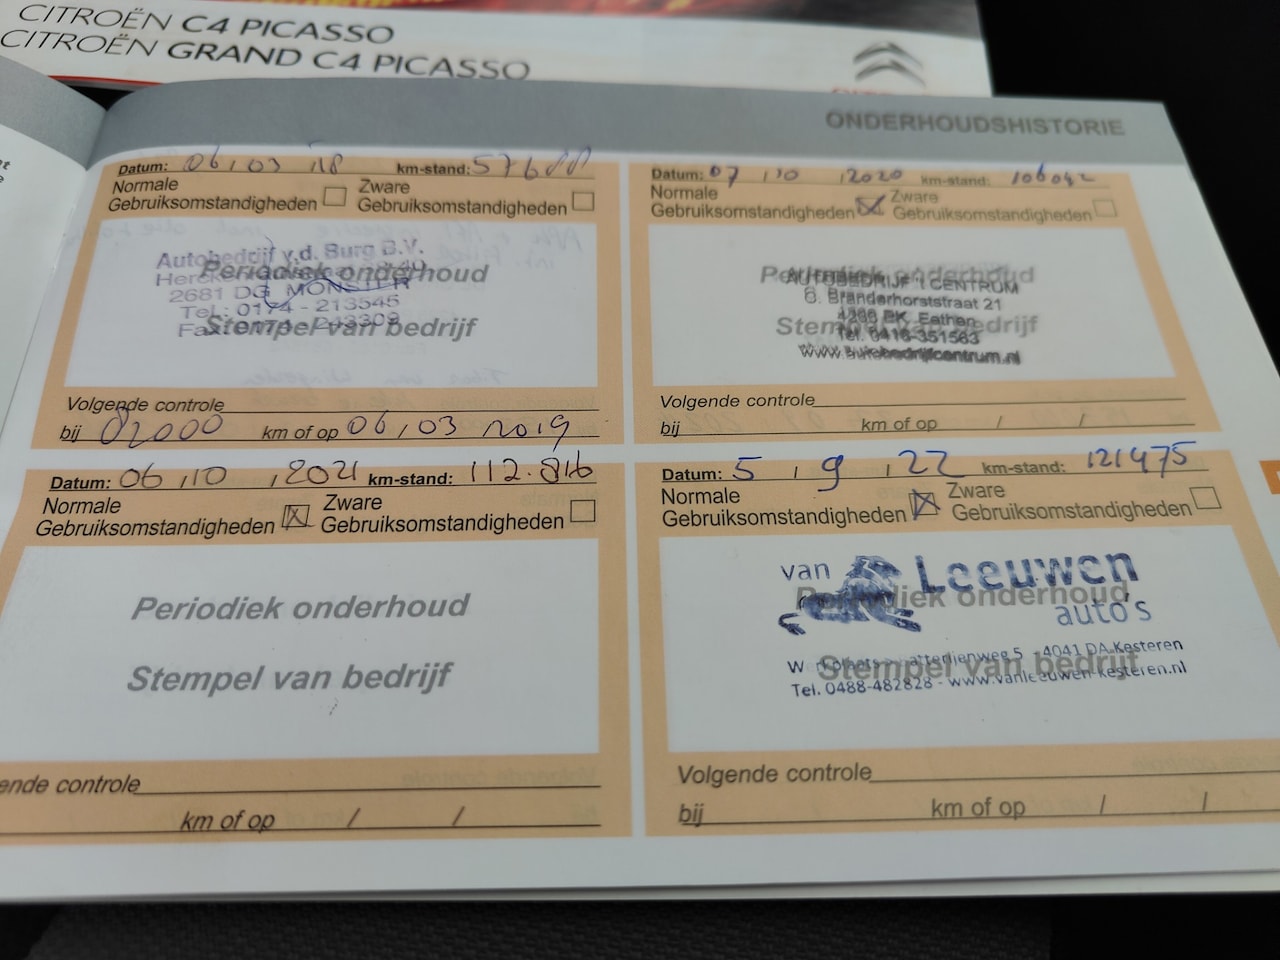 CITROËN C4 PICASSO
CITROËN GRAND C4 PICASSO
ONDERHOUDSHISTORIE
Datum: 06 / 03 / 18 km-stand: 57688
Normale Gebruiksomstandigheden
Zware Gebruiksomstandigheden
Autobedrijf v.d. Burg B.V.
Periodiek onderhoud
2681 DG MONSTER
Tel.: 0174 - 213545
Stempel van bedrijf
Volgende controle
bij 82000 km of op 06 / 03 2019
Datum: 07 / 10 / 2020 km-stand: 106042
Normale Gebruiksomstandigheden
Zware Gebruiksomstandigheden
Periodiek onderhoud
AUTOBEDRIJF 't CENTRUM
G. Branderhorststraat 21
Eethen
Stempel van bedrijf
Tel. 0416-351563
www.autobedrijfcentrum.nl
Volgende controle
bij km of op / /
Datum: 06 / 10 / 2021 km-stand: 112.816
Normale Gebruiksomstandigheden
Zware Gebruiksomstandigheden
Periodiek onderhoud
Stempel van bedrijf
ende controle
km of op / /
Datum: 5 / 9 / 22 km-stand: 121475
Normale Gebruiksomstandigheden
Zware Gebruiksomstandigheden
van Leeuwen
Periodiek onderhoud
auto's
5 - 4041 DA Kesteren
Stempel van bedrijf
Tel. 0488-482828 - www.vanleeuwen-kesteren.nl
Volgende controle
bij km of op / /